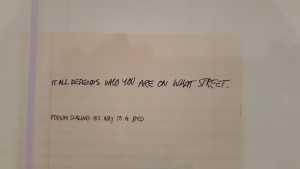 IT ALL DEPENDS WHO YOU ARE ON WHAT STREET.
SCALING HIS WAY TO A BED